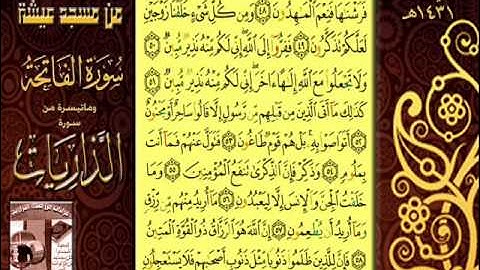 ١٤٣١هـ
من مسجد عيشة
سورة الفاتحة
وماتيسرة من
سورة
الذاريات
فَرَشْنَٰهَا فَنِعْمَ ٱلْمَٰهِدُونَ ٤٨ وَمِن كُلِّ شَىْءٍ خَلَقْنَا زَوْجَيْنِ
لَعَلَّكُمْ تَذَكَّرُونَ ٤٩ فَفِرُّوٓا۟ إِلَى ٱللَّهِ إِنِّى لَكُم مِّنْهُ نَذِيرٌ مُّبِينٌ ٥٠
وَلَا تَجْعَلُوا۟ مَعَ ٱللَّهِ إِلَٰهًا ءَاخَرَ إِنِّى لَكُم مِّنْهُ نَذِيرٌ مُّبِينٌ ٥١
كَذَٰلِكَ مَآ أَتَى ٱلَّذِينَ مِن قَبْلِهِم مِّن رَّسُولٍ إِلَّا قَالُوا۟ سَاحِرٌ أَوْ مَجْنُونٌ
٥٢ أَتَوَاصَوْا۟ بِهِۦ بَلْ هُمْ قَوْمٌ طَاغُونَ ٥٣ فَتَوَلَّ عَنْهُمْ فَمَآ أَنتَ
بِمَلُومٍ ٥٤ وَذَكِّرْ فَإِنَّ ٱلذِّكْرَىٰ تَنفَعُ ٱلْمُؤْمِنِينَ ٥٥ وَمَا
خَلَقْتُ ٱلْجِنَّ وَٱلْإِنسَ إِلَّا لِيَعْبُدُونِ ٥٦ مَآ أُرِيدُ مِنْهُم مِّن رِّزْقٍ
وَمَآ أُرِيدُ أَن يُطْعِمُونِ ٥٧ إِنَّ ٱللَّهَ هُوَ ٱلرَّزَّاقُ ذُو ٱلْقُوَّةِ ٱلْمَتِينُ
٥٨ فَإِنَّ لِلَّذِينَ ظَلَمُوا۟ ذَنُوبًا مِّثْلَ ذَنُوبِ أَصْحَٰبِهِمْ فَلَا يَسْتَعْجِلُونِ